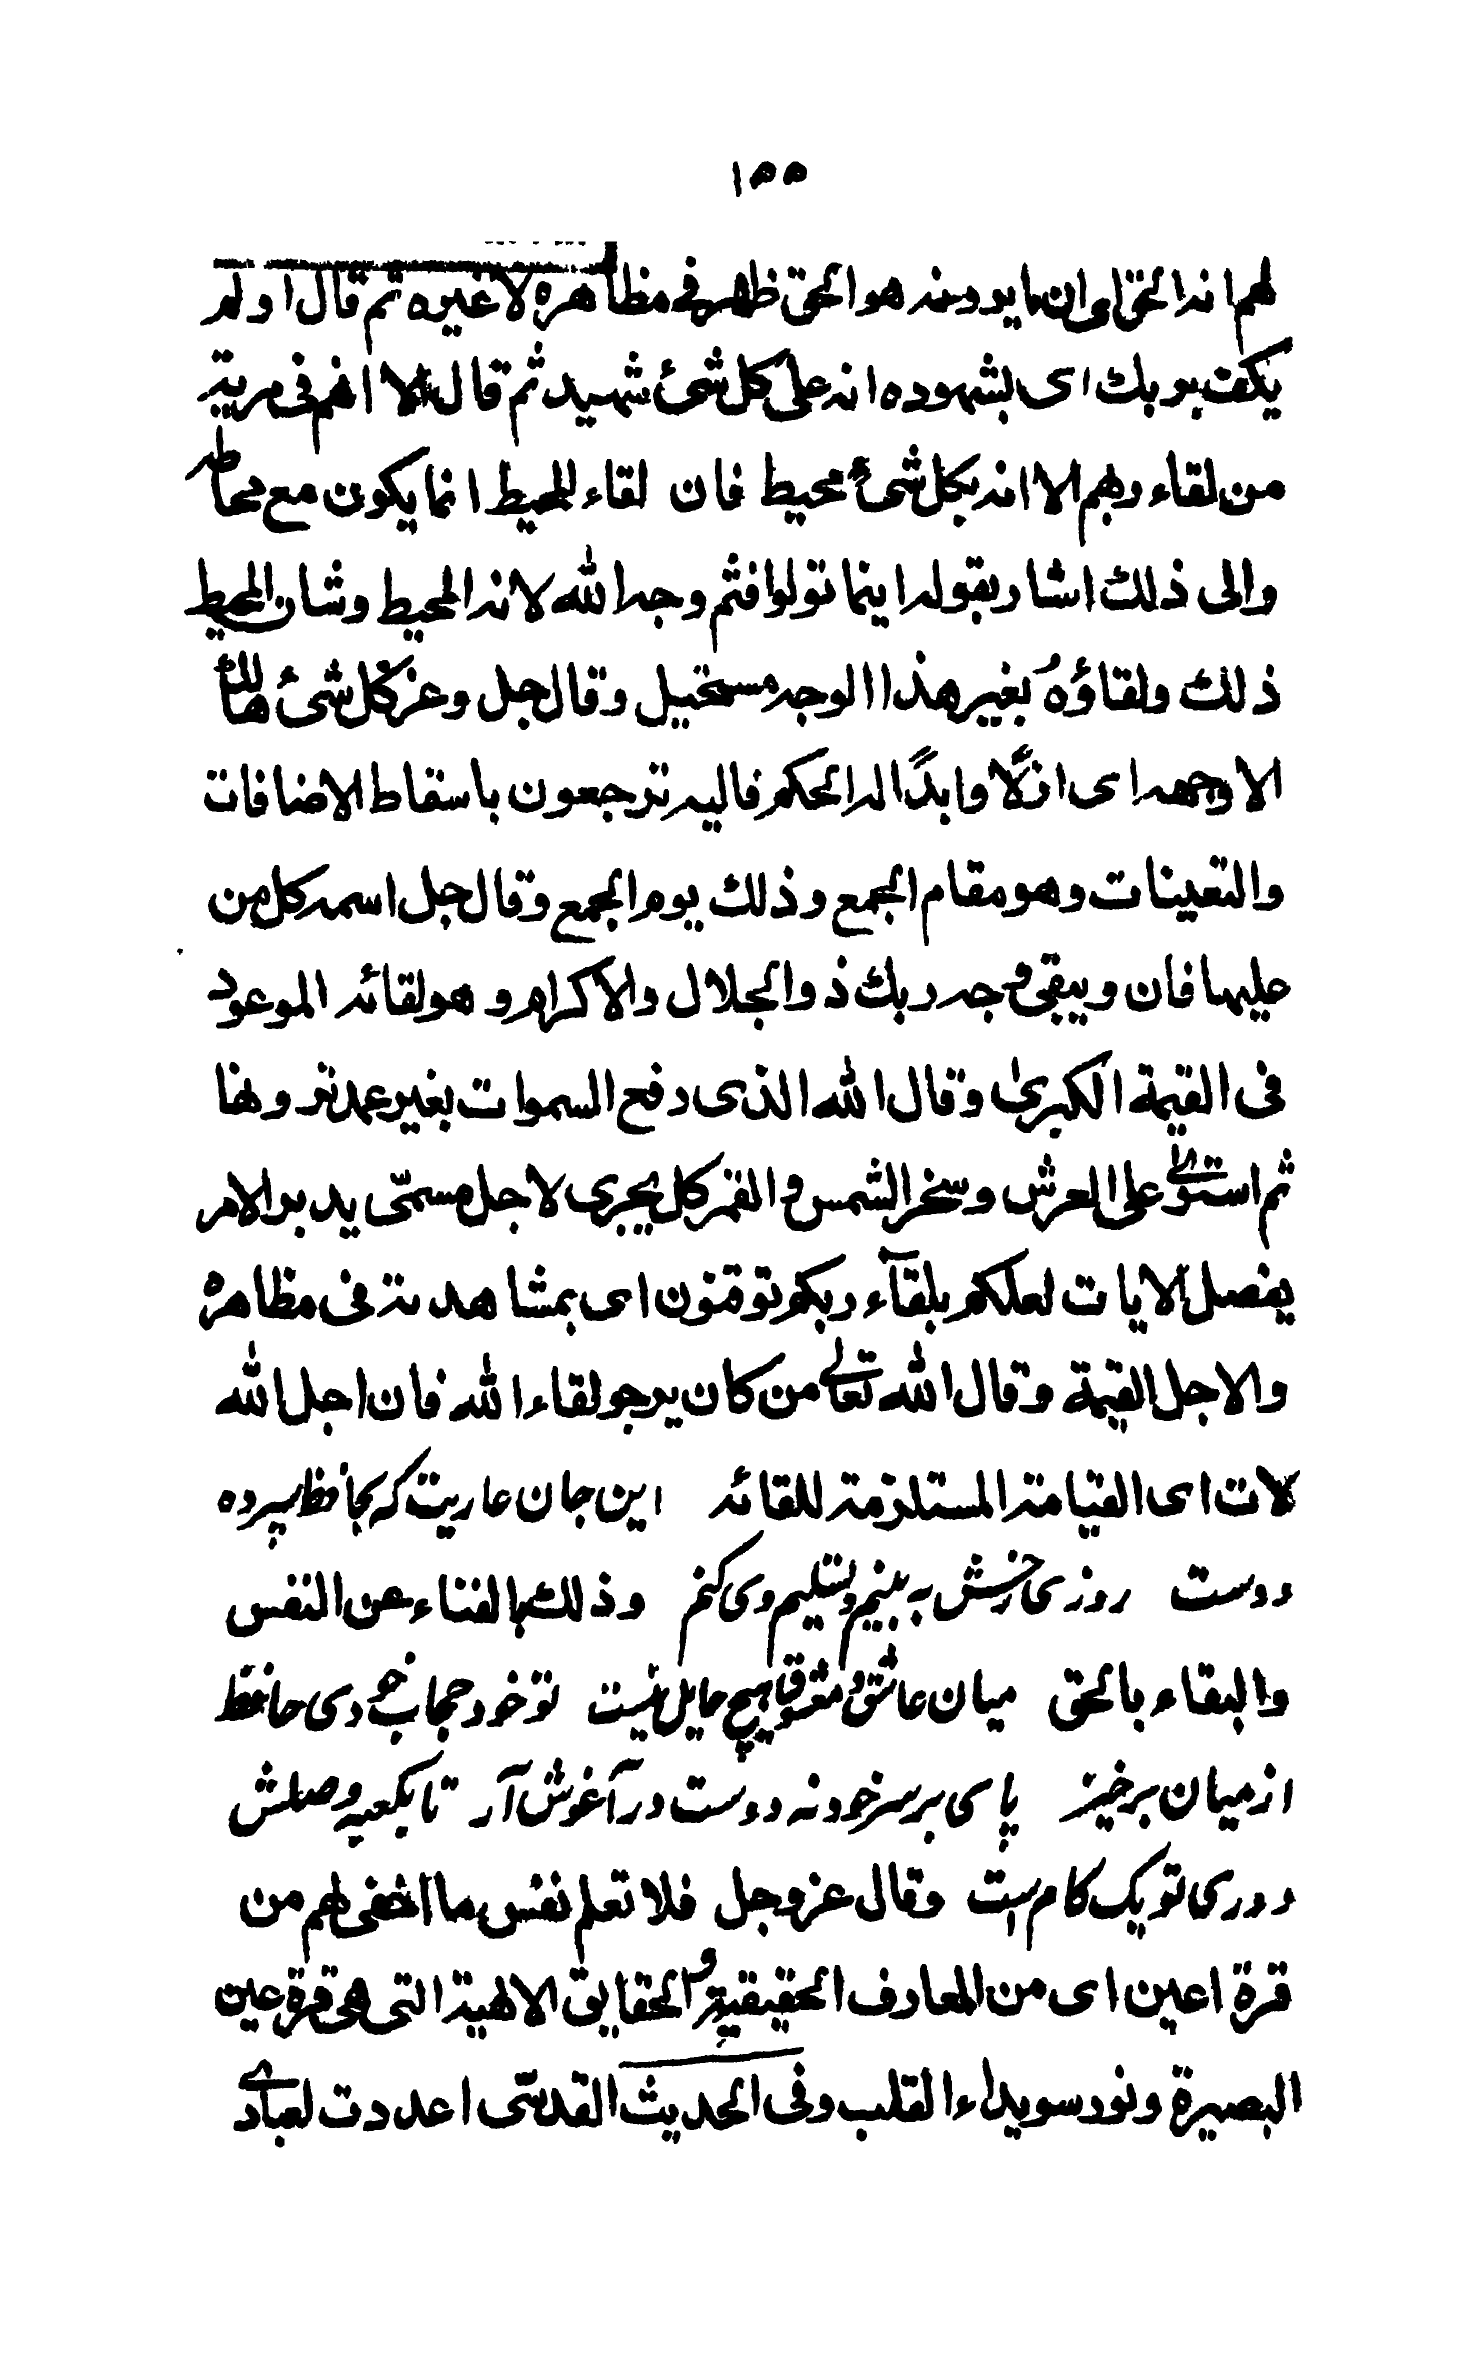 ١٥٥
لهم انه الحق اى ان ما يرونه هو الحق ظهر فى مظاهره لا غيره ثم قال اولم
يكف بربك اى بشهوده انه على كل شئ شهيد ثم قال الا انهم فى مرية
من لقاء ربهم الا انه بكل شئ محيط فان لقاء المحيط انما يكون مع محاطه
والى ذلك اشار بقوله اينما تولوا فثم وجه الله لانه المحيط وشان المحيط
ذلك ولقاؤهُ بغير هذا الوجه مستحيل وقال جل وعز كل شئ هالك
الا وجهه اى ازلًا وابدًا له الحكم فاليه ترجعون باسقاط الاضافات
والتعينات وهو مقام الجمع وذلك يوم الجمع وقال جل اسمه كل من
عليها فان ويبقى وجه ربك ذو الجلال والاكرام وهو لقائه الموعود
فى القيمة الكبرى وقال الله الذى رفع السموات بغير عمد ترونها
ثم استوى على العرش وسخر الشمس والقمر كل يجرى لاجل مسمّى يدبر الامر
يفصل الايات لعلكم بلقآء ربكم توقنون اى بمشاهدته فى مظاهره
والاجل القيمة وقال الله تعالى من كان يرجو لقاء الله فان اجل الله
لات اى القيامة المستلزمة للقائه اين جان عاريت كه بحافظ سپرده
دوست روزى رخش به بينم و تسليم وى كنم وذلك بالفناء عن النفس
والبقاء بالحق ميان عاشق و معشوق هيچ حايل نيست تو خود حجاب خودى حافظ
از ميان برخيز پاى بر سر خود نه دوست در آغوش آر تا بكعبه وصلش
دورى تو يک كام است وقال عز وجل فلا تعلم نفس ما اخفى لهم من
قرة اعين اى من المعارف الحقيقية و الحقايق الالهية التى هى قرة عين
البصيرة ونور سويداء القلب وفى الحديث القدسّى اعددت لعبادى